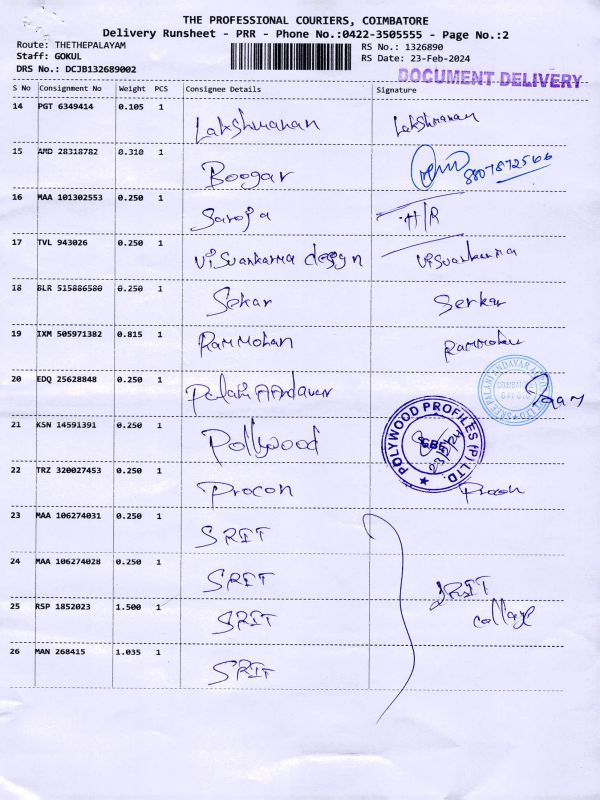 THE PROFESSIONAL COURIERS, COIMBATORE
Delivery Runsheet - PRR - Phone No.:0422-3505555 - Page No.:2
Route: THETHEPALAYAM
Staff: GOKUL
DRS No.: DCJB132689002
RS No.: 1326890
RS Date: 23-Feb-2024
DOCUMENT DELIVERY
S No Consignment No Weight PCS Consignee Details Signature
14 PGT 6349414 0.105 1 Lakshmanan Lakshmanan
15 AMD 28318782 0.310 1 Boogar 8807872566
16 MAA 101302553 0.250 1 Saroja H/R
17 TVL 943026 0.250 1 Visvankarma design Visvankarma
18 BLR 515886580 0.250 1 Sekar Serkar
19 IXM 505971382 0.815 1 RamMohan RamMohan
20 EDQ 25628848 0.250 1 Palani Andavar
21 KSN 14591391 0.250 1 Pollywood POLYWOOD PROFILES (P) LTD.
22 TRZ 320027453 0.250 1 Procon Procon
23 MAA 106274031 0.250 1 SRIT
24 MAA 106274028 0.250 1 SRIT
25 RSP 1852023 1.500 1 SRIT SRIT college
26 MAN 268415 1.035 1 SRIT